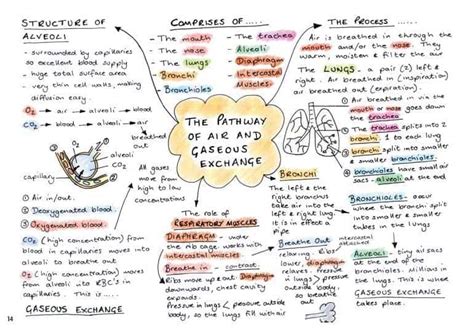 STRUCTURE OF
ALVEOLI
- surrounded by capillaries
so excellent blood supply
- huge total surface area
- very thin cell walls, making
diffusion easy.
O2 → air → alveoli → blood
CO2 → blood → alveoli → air
breathed
out
alveoli
CO2
O2
capillary
blood
① Air in/out.
② Deoxygenated blood.
③ Oxygenated blood.
CO2 (high concentration) from
blood in capillaries moves into
alveoli to breathe out
O2 (high concentration) moves
from alveoli into RBC's in
capillaries. This is .....
GASEOUS EXCHANGE
14
All gases
move from
high to low
concentrations
COMPRISES OF .....
- The mouth
- The nose
- The lungs
- Bronchi
- Bronchioles
- The trachea
- Alveoli
- Diaphragm
- Intercostal
Muscles.
THE PATHWAY
OF AIR AND
GASEOUS
EXCHANGE
The role of
RESPIRATORY MUSCLES
DIAPHRAGM - under
the rib cage works with
intercostal muscles
Breathe in - contract.
Ribs move up+out. Diaphragm
downwards, chest cavity
expands.
Pressure in lungs < pressure outside
body, so the lungs fill with air
BRONCHI
The left & the
right bronchus
take air into the
left & right lung.
It is in effect a
pipe
Breathe Out - intercostals
relaxing. Ribs
lower, diaphragm
relaxes. Pressure
in lungs > pressure
outside body,
so breathe
out
THE PROCESS .....
Air is breathed in through the
mouth and/or the nose. They
warm, moisten & filter the air
THE LUNGS - a pair (2) left &
right. Air breathed in (inspiration)
air breathed out (expiration)
① Air breathed in via the
mouth or nose goes down
the trachea.
② The trachea splits into 2
bronchi. 1 to each lung
③ bronchi split into smaller
& smaller bronchioles.
④ bronchioles have small air
sacs alveoli at the end
BRONCHIOLES - occur
where the bronchi split
into smaller & smaller
tubes in the lung.
ALVEOLI - tiny air sacs
at the end of the
bronchioles. Millions in
the lungs. This is where
GASEOUS EXCHANGE
takes place.